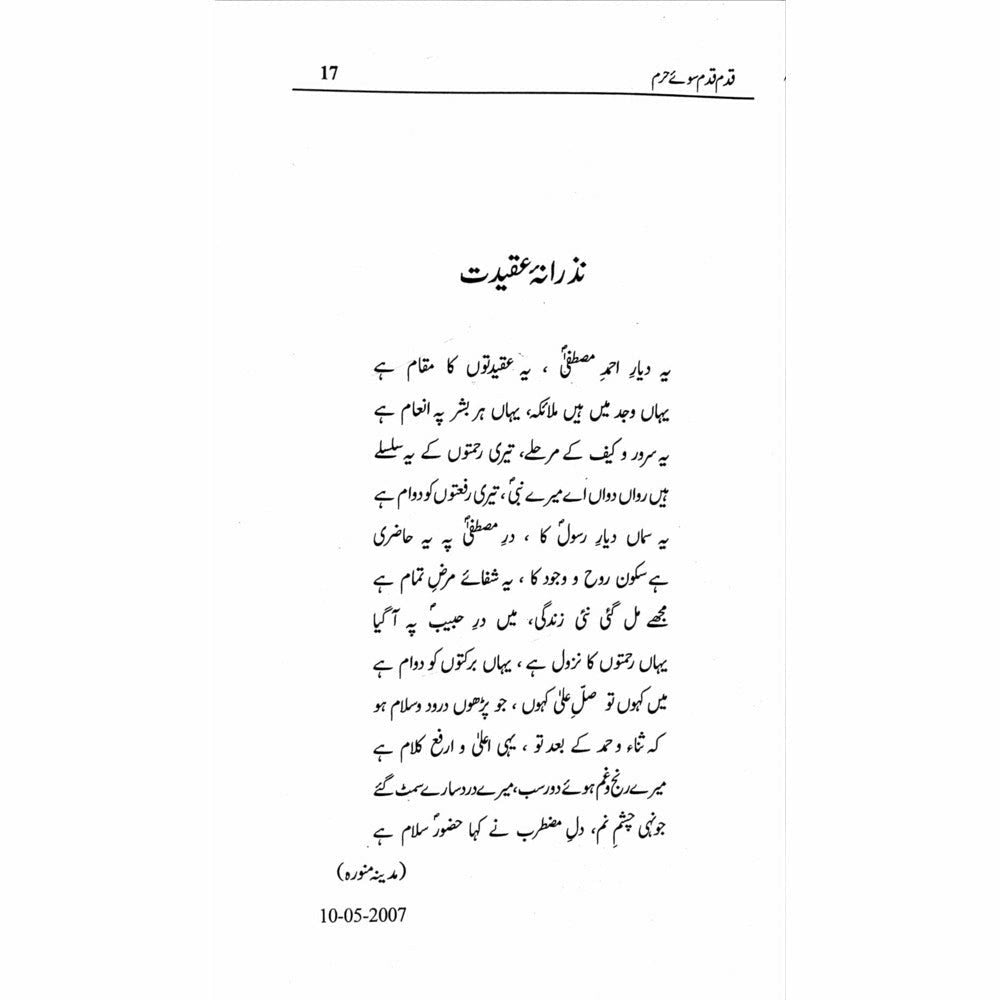 قدم قدم سوئے حرم
17
نذرانۂ عقیدت
یہ دیارِ احمدِ مصطفیٰؐ ، یہ عقیدتوں کا مقام ہے
یہاں وجد میں ہیں ملائکہ، یہاں ہر بشر پہ انعام ہے
یہ سرور و کیف کے مرحلے، تیری رحمتوں کے یہ سلسلے
ہیں رواں دواں اے میرے نبیؐ، تیری رفعتوں کو دوام ہے
یہ سماں دیارِ رسولؐ کا ، درِ مصطفیٰؐ پہ یہ حاضری
ہے سکون روح و وجود کا ، یہ شفائے مرضِ تمام ہے
مجھے مل گئی نئی زندگی، میں درِ حبیبؐ پہ آ گیا
یہاں رحمتوں کا نزول ہے ، یہاں برکتوں کو دوام ہے
میں کہوں تو صلِّ علیٰ کہوں ، جو پڑھوں درود و سلام ہو
کہ ثناء و حمد کے بعد تو ، یہی اعلیٰ و ارفع کلام ہے
میرے رنج و غم ہوئے دور سب، میرے درد سارے سمٹ گئے
جونہی چشمِ نم، دلِ مضطرب نے کہا حضورؐ سلام ہے
(مدینہ منورہ)
10-05-2007